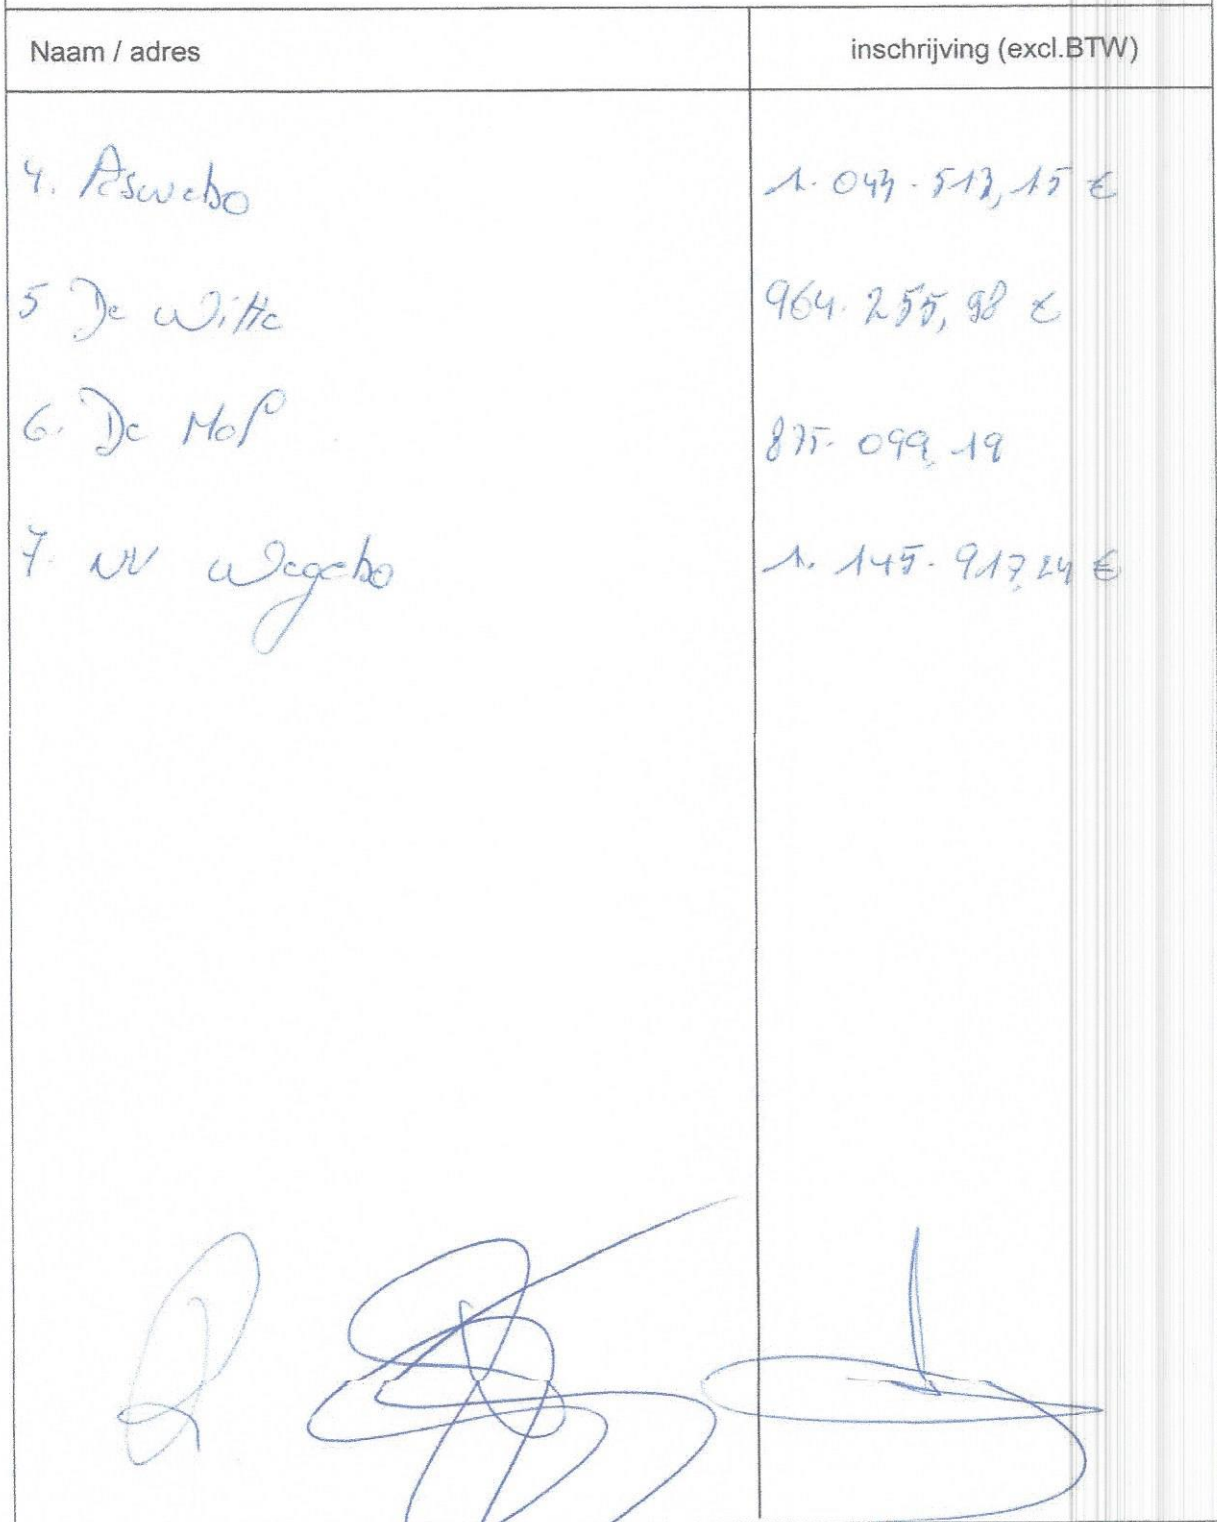 Naam / adres inschrijving (excl.BTW)
4. Aswebo 1.044.513,15 €
5 De Witte 964.255,98 €
6. De Mol 875.099,19
7. NV Wegebo 1.145.917,24 €